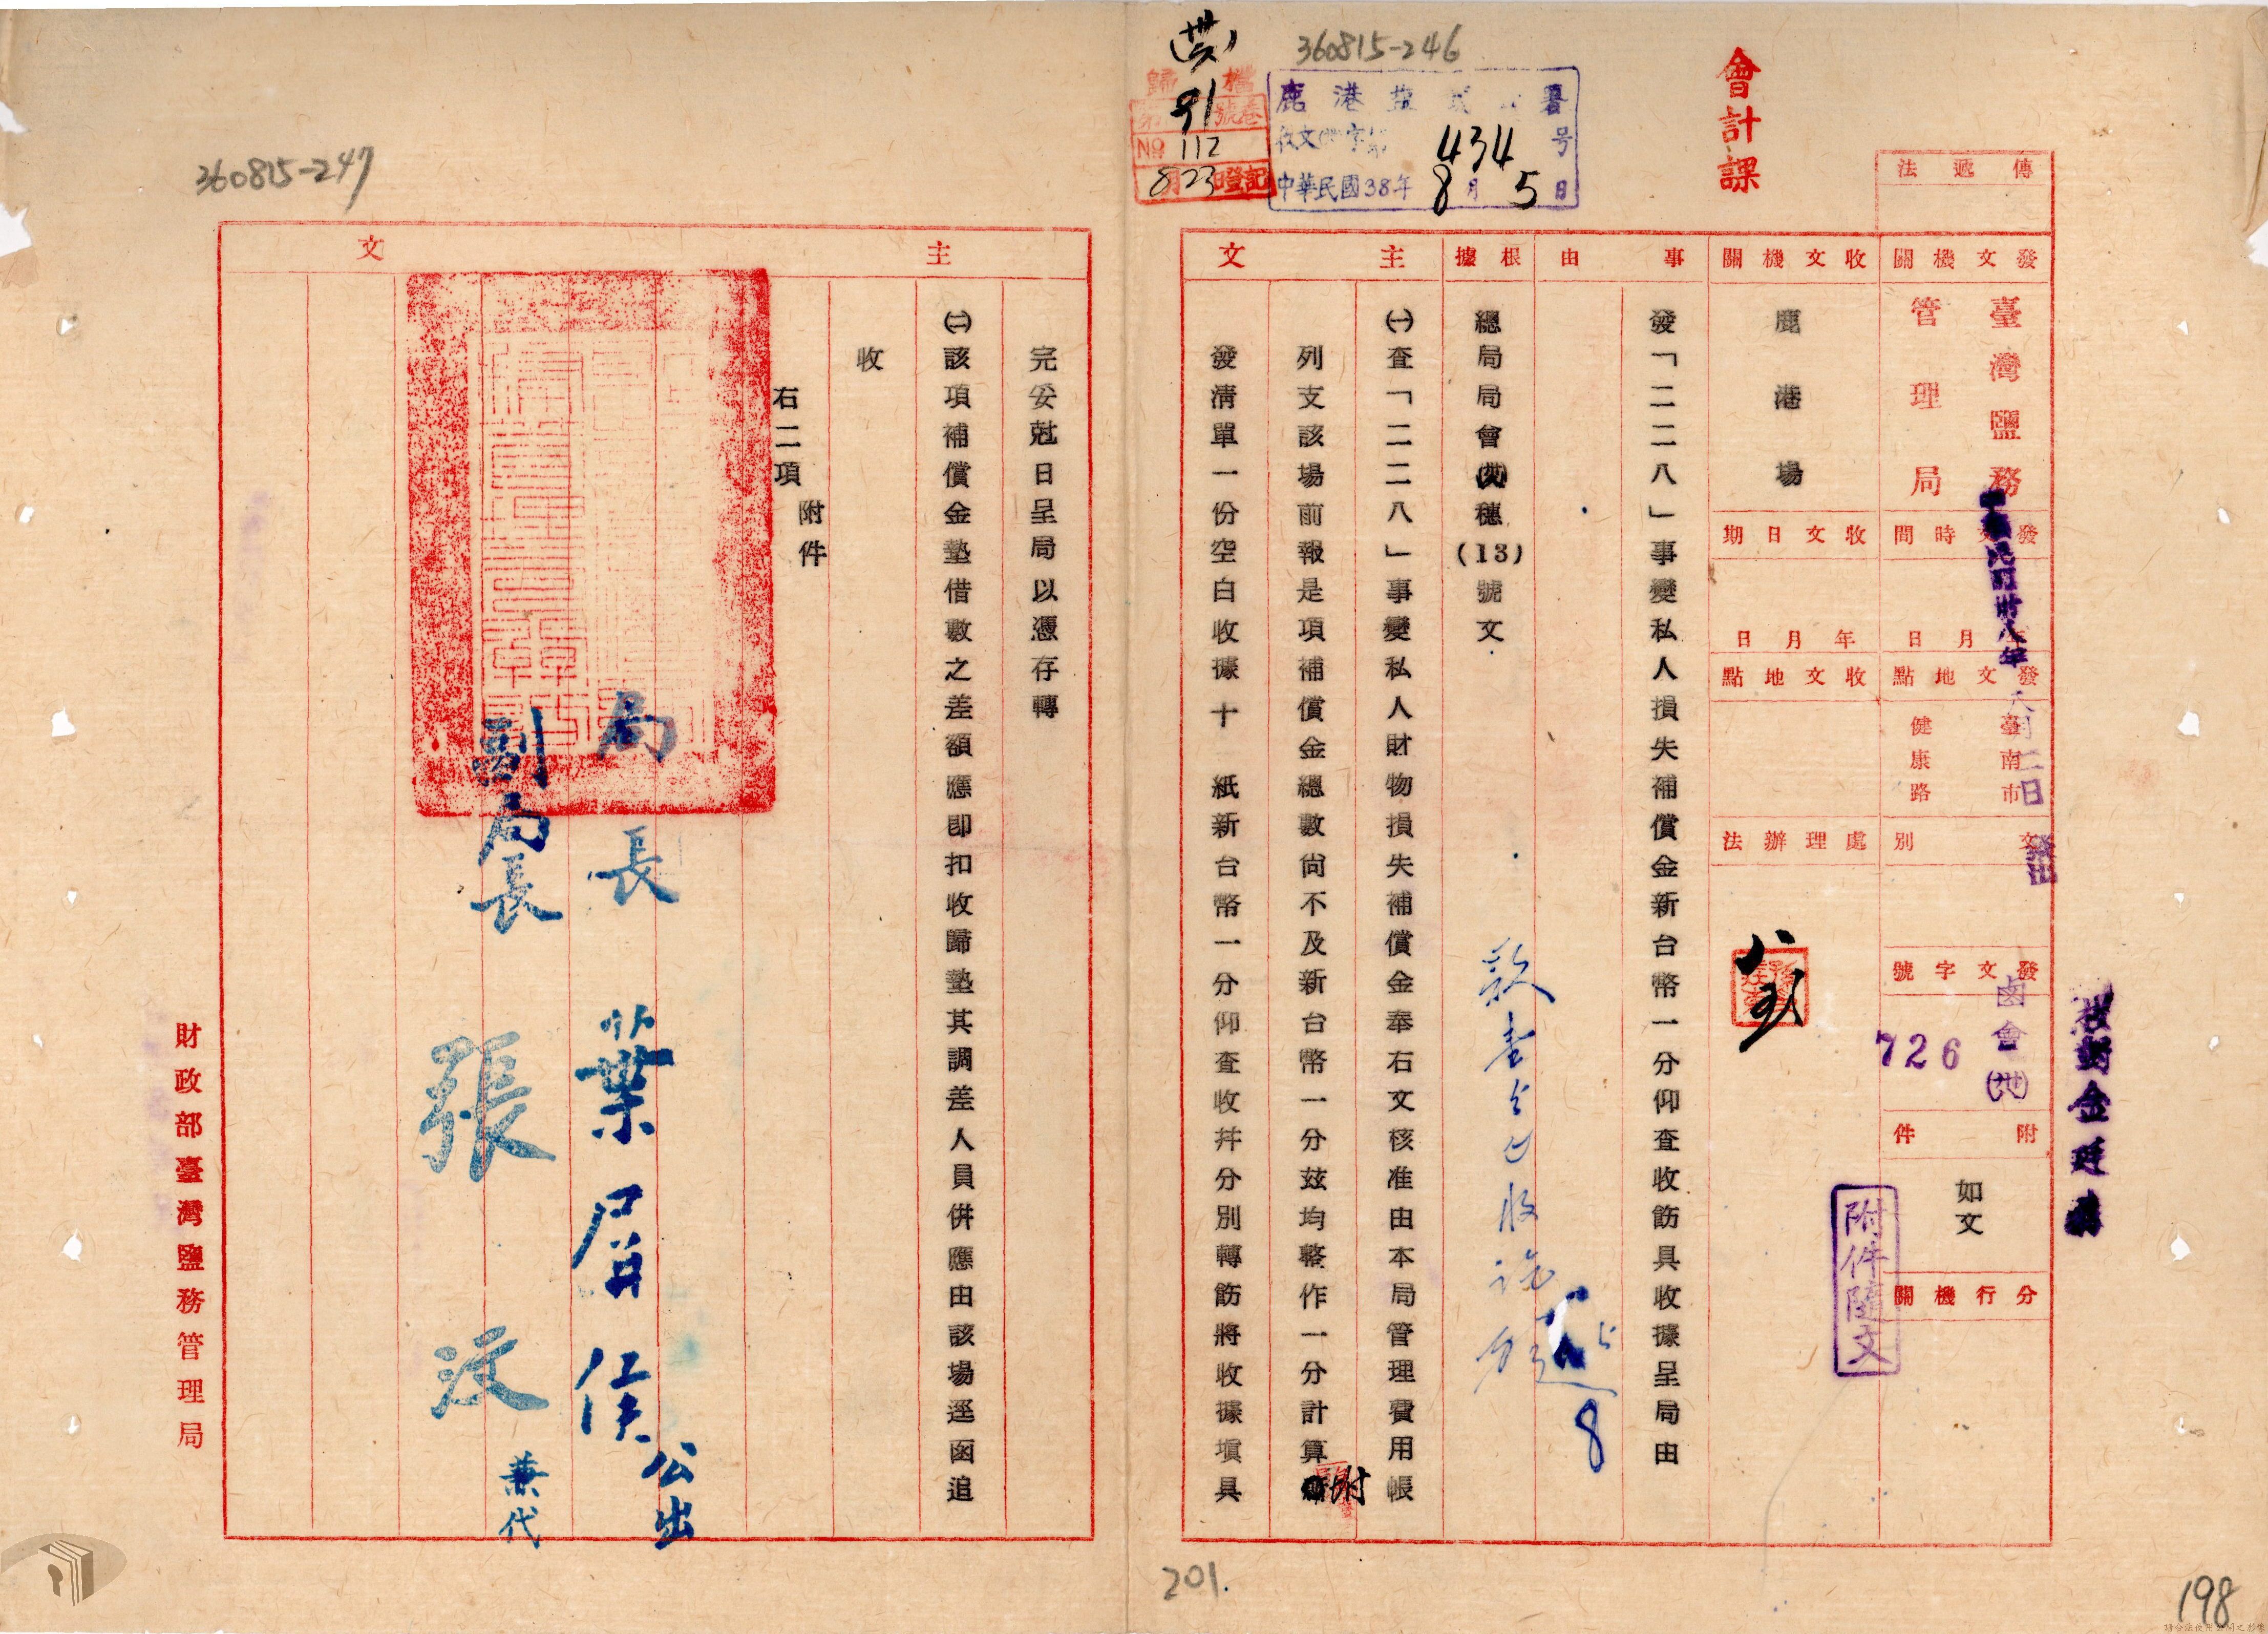 會計課
傳遞法
發文機關
臺灣鹽務
管理局
收文機關
鹿港場
發文時間
中華民國卅八年
年月日
八月二日
發出
收文日期
年月日
發文地點
臺南市
健康路
收文地點
文別
處理辦法
發文字號
鹵會(卅八)
726
附件
如文
分行機關
附件隨文
校對金廷
事由
發「二二八」事變私人損失補償金新台幣一分仰查收飭具收據呈局由
根據
總局局會(卅八)穗(13)號文
款壹分已收訖
主文
㈠查「二二八」事變私人財物損失補償金奉右文核准由本局管理費用帳
列支該場前報是項補償金總數尚不及新台幣一分茲均整作一分計算附
發清單一份空白收據十 紙新台幣一分仰查收并分別轉飭將收據填具
鹿港鹽 署
收文 字第434号
中華民國38年8月5日
歸檔
第91號卷
No 112
8月23日登記
360815-246
201.
198
360815-247
主文
完妥尅日呈局以憑存轉
㈡該項補償金墊借數之差額應即扣收歸墊其調差人員併應由該場逕函追
收
右二項
附件
局長 葉眉侯 公出
副局長 張汶 兼代
財政部臺灣鹽務管理局